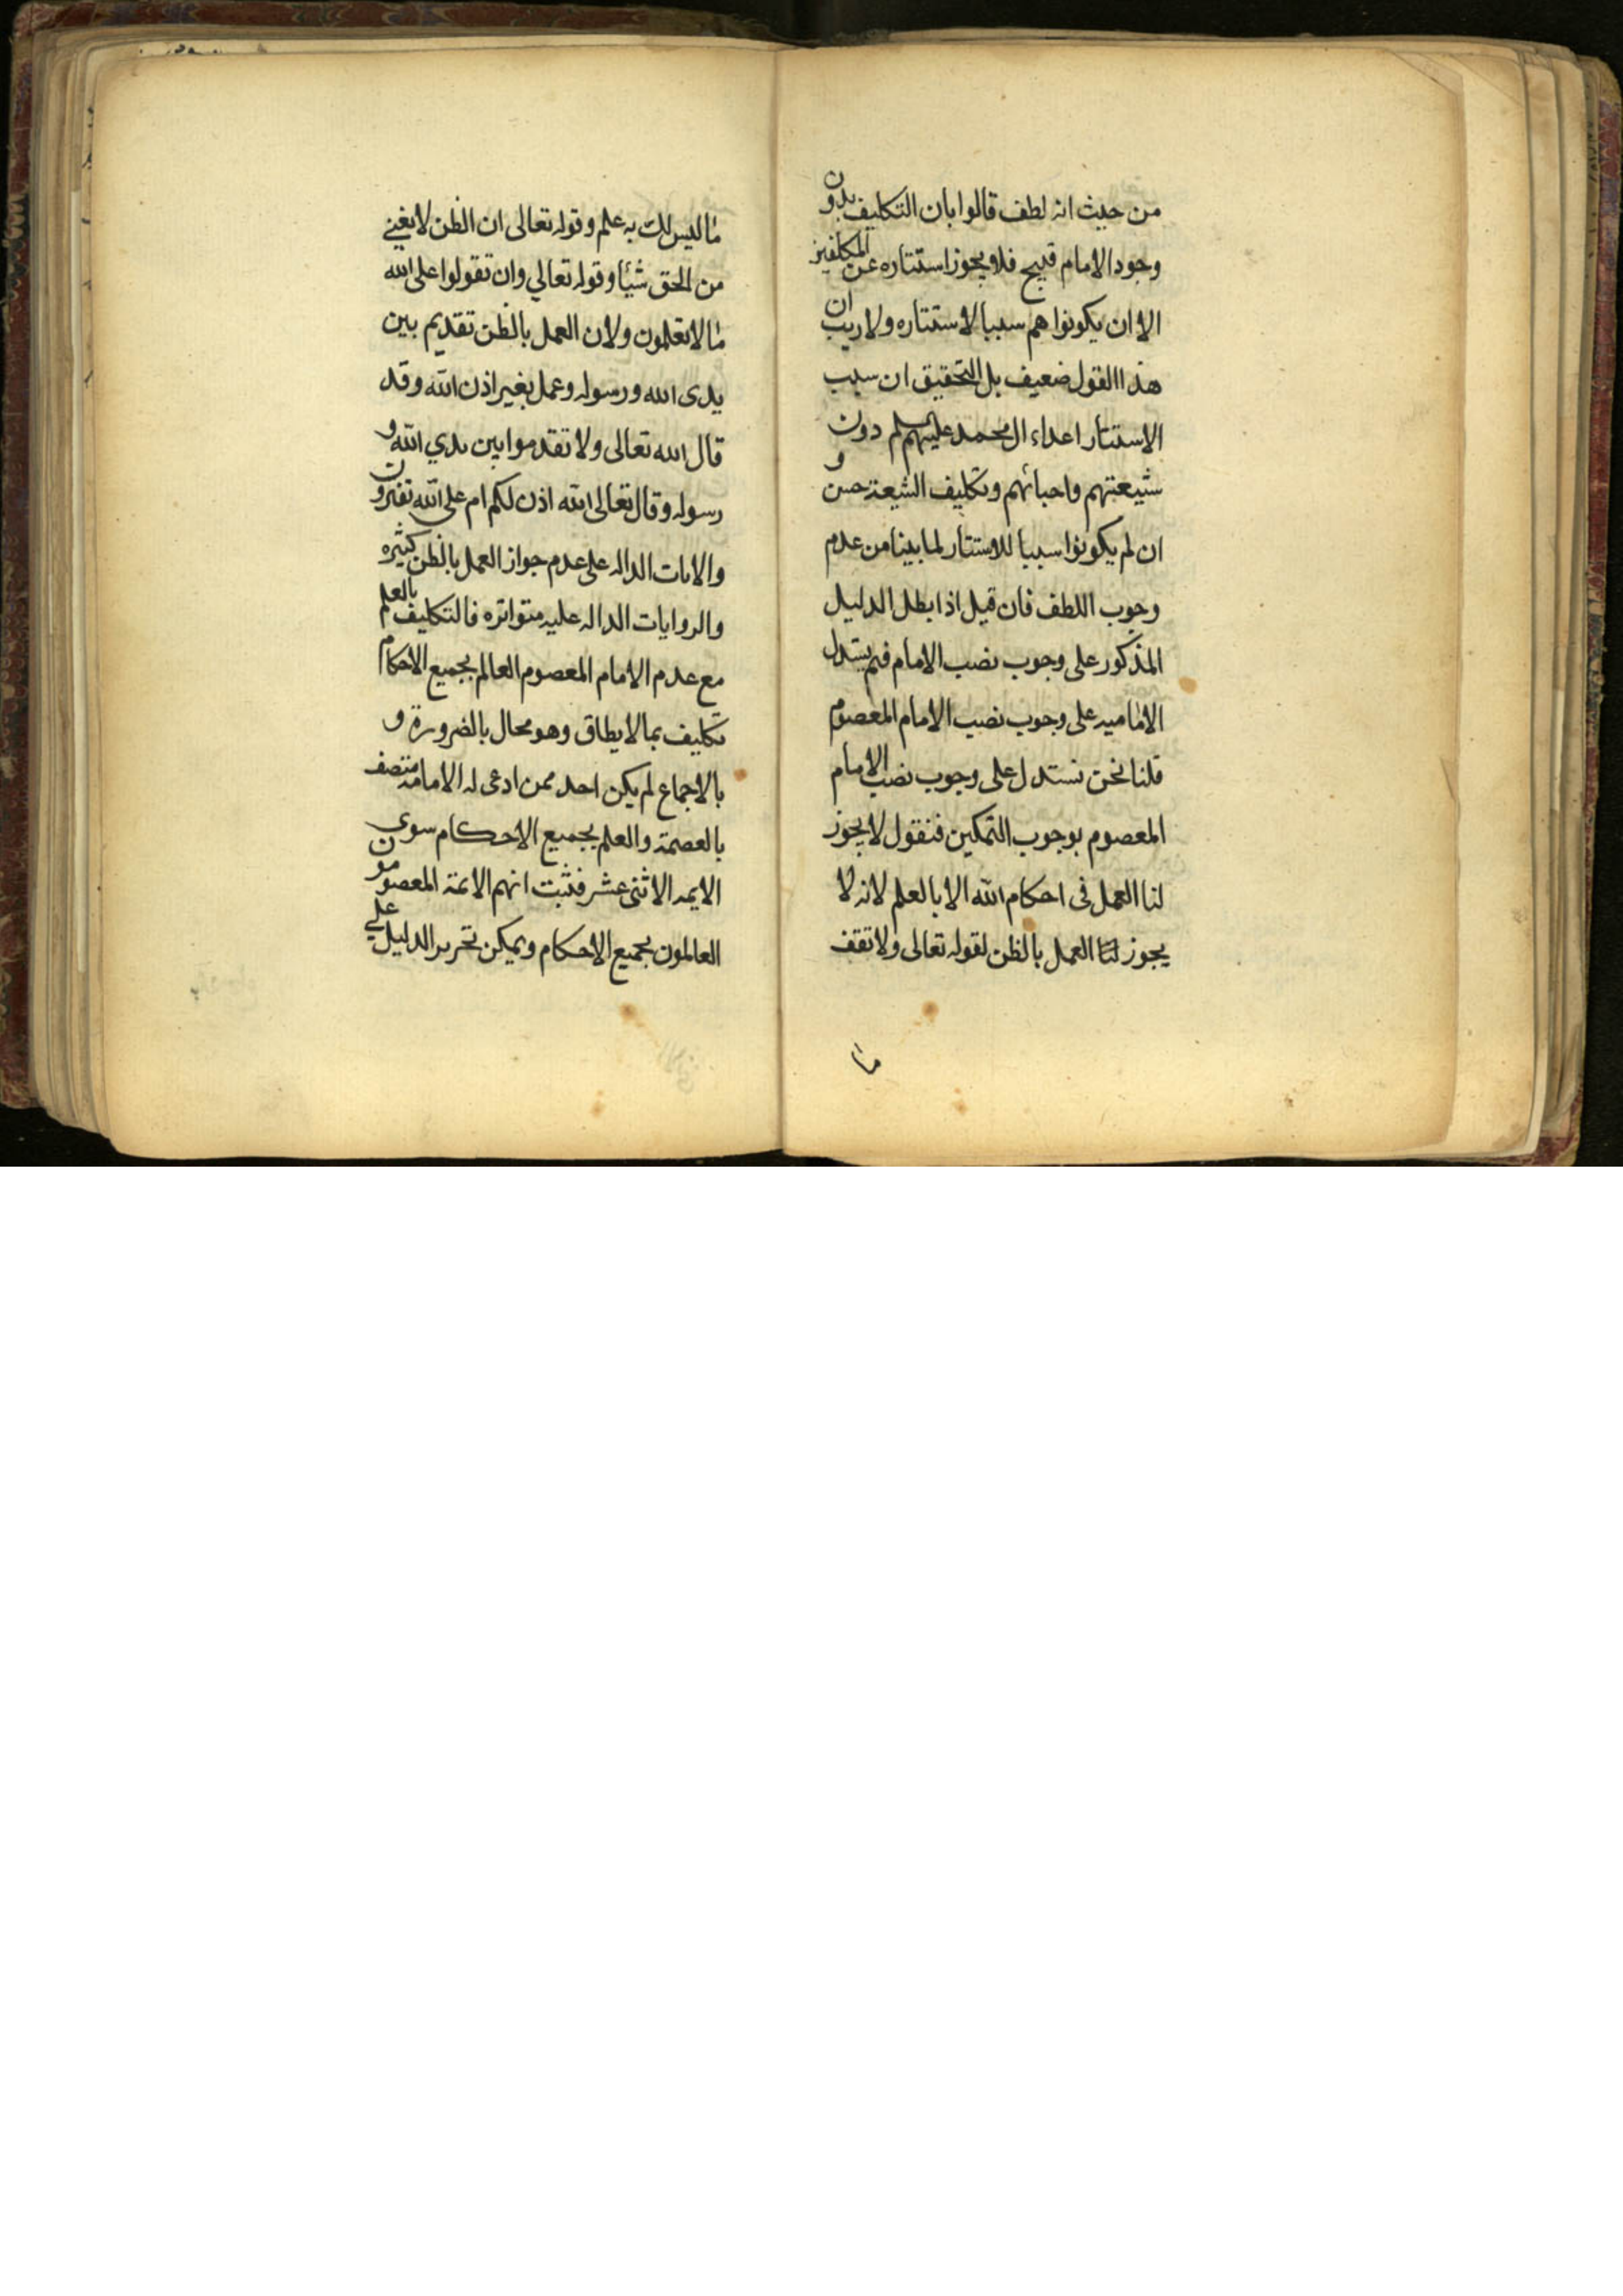 من حيث انه لطف قالوا بان التكليف بدون
وجود الامام قبيح فلا يجوز استتاره عن المكلفين
الا ان يكونوا هم سببا لاستتاره ولا ريب ان
هذا القول ضعيف بل التحقيق ان سبب
الاستتار اعداء ال محمد عليهم السلم دون
شيعتهم واحبائهم وتكليف الشيعة حسن و
ان لم يكونوا سببا للاستتار لما بينا من عدم
وجوب اللطف فان قيل اذا بطل الدليل
المذكور على وجوب نصب الامام فبم يستدل
الامامیه على وجوب نصب الامام المعصوم
قلنا نحن نستدل على وجوب نصب الامام
المعصوم بوجوب التمكين فنقول لا يجوز
لنا العمل فى احكام الله الا بالعلم لانه لا
يجوز لنا العمل بالظن لقوله تعالى ولا تقف
ما
ما ليس لك به علم وقوله تعالى ان الظن لا يغني
من الحق شيئا وقوله تعالي وان تقولوا على الله
ما لا تعلمون ولان العمل بالظن تقديم بين
يدى الله ورسوله وعمل بغير اذن الله وقد
قال الله تعالى ولا تقدموا بين يدي الله و
رسوله وقال تعالى الله اذن لكم ام على الله تفترون
والايات الداله على عدم جواز العمل بالظن كثيره
والروايات الداله عليه متواتره فالتكليف بالعلم
مع عدم الامام المعصوم العالم بجميع الاحكام
تكليف بما لا يطاق وهو محال بالضرورة و
بالاجماع لم يكن احد ممن ادعى له الامامة متصف
بالعصمة والعلم بجميع الاحكام سوى
الايمه الاثنى عشر فثبت انهم الائمة المعصومون
العالمون بجميع الاحكام ويمكن تحرير الدليل علي